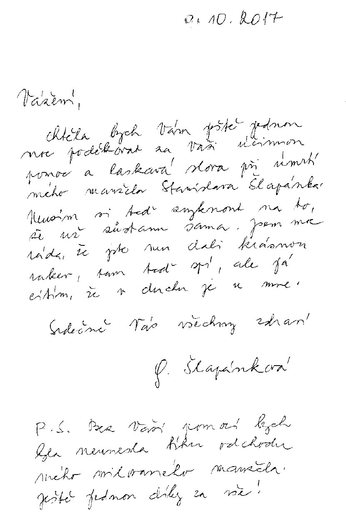 2. 10. 2017
Vážení,
chtěla bych Vám ještě jednou
moc poděkovat za Vaši účinnou
pomoc a laskavá slova při úmrtí
mého manžela Stanislava Šlapánka.
Musím si teď zvyknout na to,
že už zůstanu sama. Jsem moc
ráda, že jste mu dali krásnou
rakev, tam teď spí, ale já
cítím, že v duchu je u mne.
Srdečně Vás všechny zdraví
Šlapánková
P.S. Bez Vaší pomoci bych
byla neunesla tíhu odchodu
mého milovaného manžela.
Ještě jednou díky za vše!